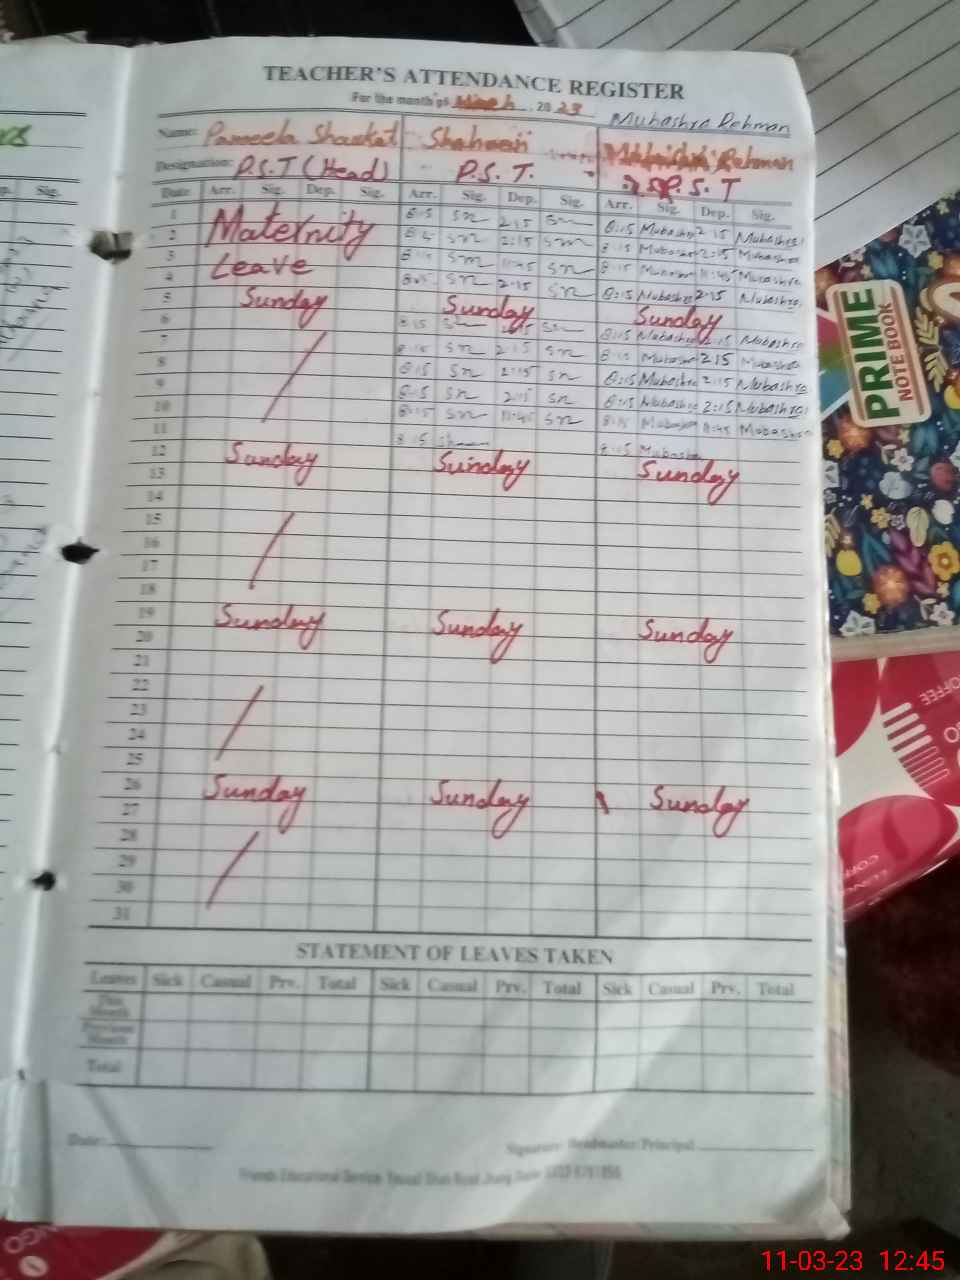 TEACHER'S ATTENDANCE REGISTER
For the month of March 2023
Mubashra Rehman
Name: Pameela Shaukat Shaheen Rehman
Designation: P.S.T (Head) P.S.T. P.S.T
Date Arr. Sig. Dep. Sig. Arr. Sig. Dep. Sig. Arr. Sig. Dep. Sig.
1 8:15 Sn 2:15 Sn 8:15 Mubashra 2:15 Mubashra
2 Maternity Sn 2:15 Sn 8:15 Mubashra 2:15 Mubashra
3 8:15 Sn 11:45 Sn 8:15 Mubashra 11:45 Mubashra
4 Leave Sn 2:15 Sn 8:15 Mubashra 2:15 Mubashra
5 Sunday Sunday Sunday
6 8:15 Sn 2:15 Sn 8:15 Mubashra 2:15 Mubashra
7 8:15 Sn 2:15 Sn 8:15 Mubashra 2:15 Mubashra
8 8:15 Sn 2:15 Sn 8:15 Mubashra 2:15 Mubashra
9 8:15 Sn 2:15 Sn 8:15 Mubashra 2:15 Mubashra
10 8:15 Sn 11:45 Sn 8:15 Mubashra 11:45 Mubashra
11 8:15 8:15 Mubashra
12 Sunday Sunday Sunday
13
14
15
16
17
18
19 Sunday Sunday Sunday
20
21
22
23
24
25
26 Sunday Sunday Sunday
27
28
29
30
31
STATEMENT OF LEAVES TAKEN
Leaves Sick Casual Prv. Total Sick Casual Prv. Total Sick Casual Prv. Total
This Month
Previous Month
Total
Date: Signature Headmaster/Principal
Friends Educational Service
Sig.
PRIME
NOTE BOOK
COFFEE
11-03-23 12:45